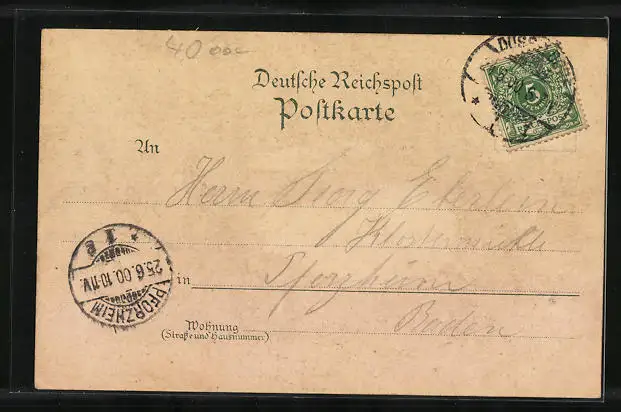 40 000
Deutsche Reichspost
Postkarte
DÜSS
5
An
Herrn Georg Eberlein
Klostermühle
in Pforzheim
Baden
Wohnung
(Straße und Hausnummer)
PFORZHEIM
25.6.00.10-11V.